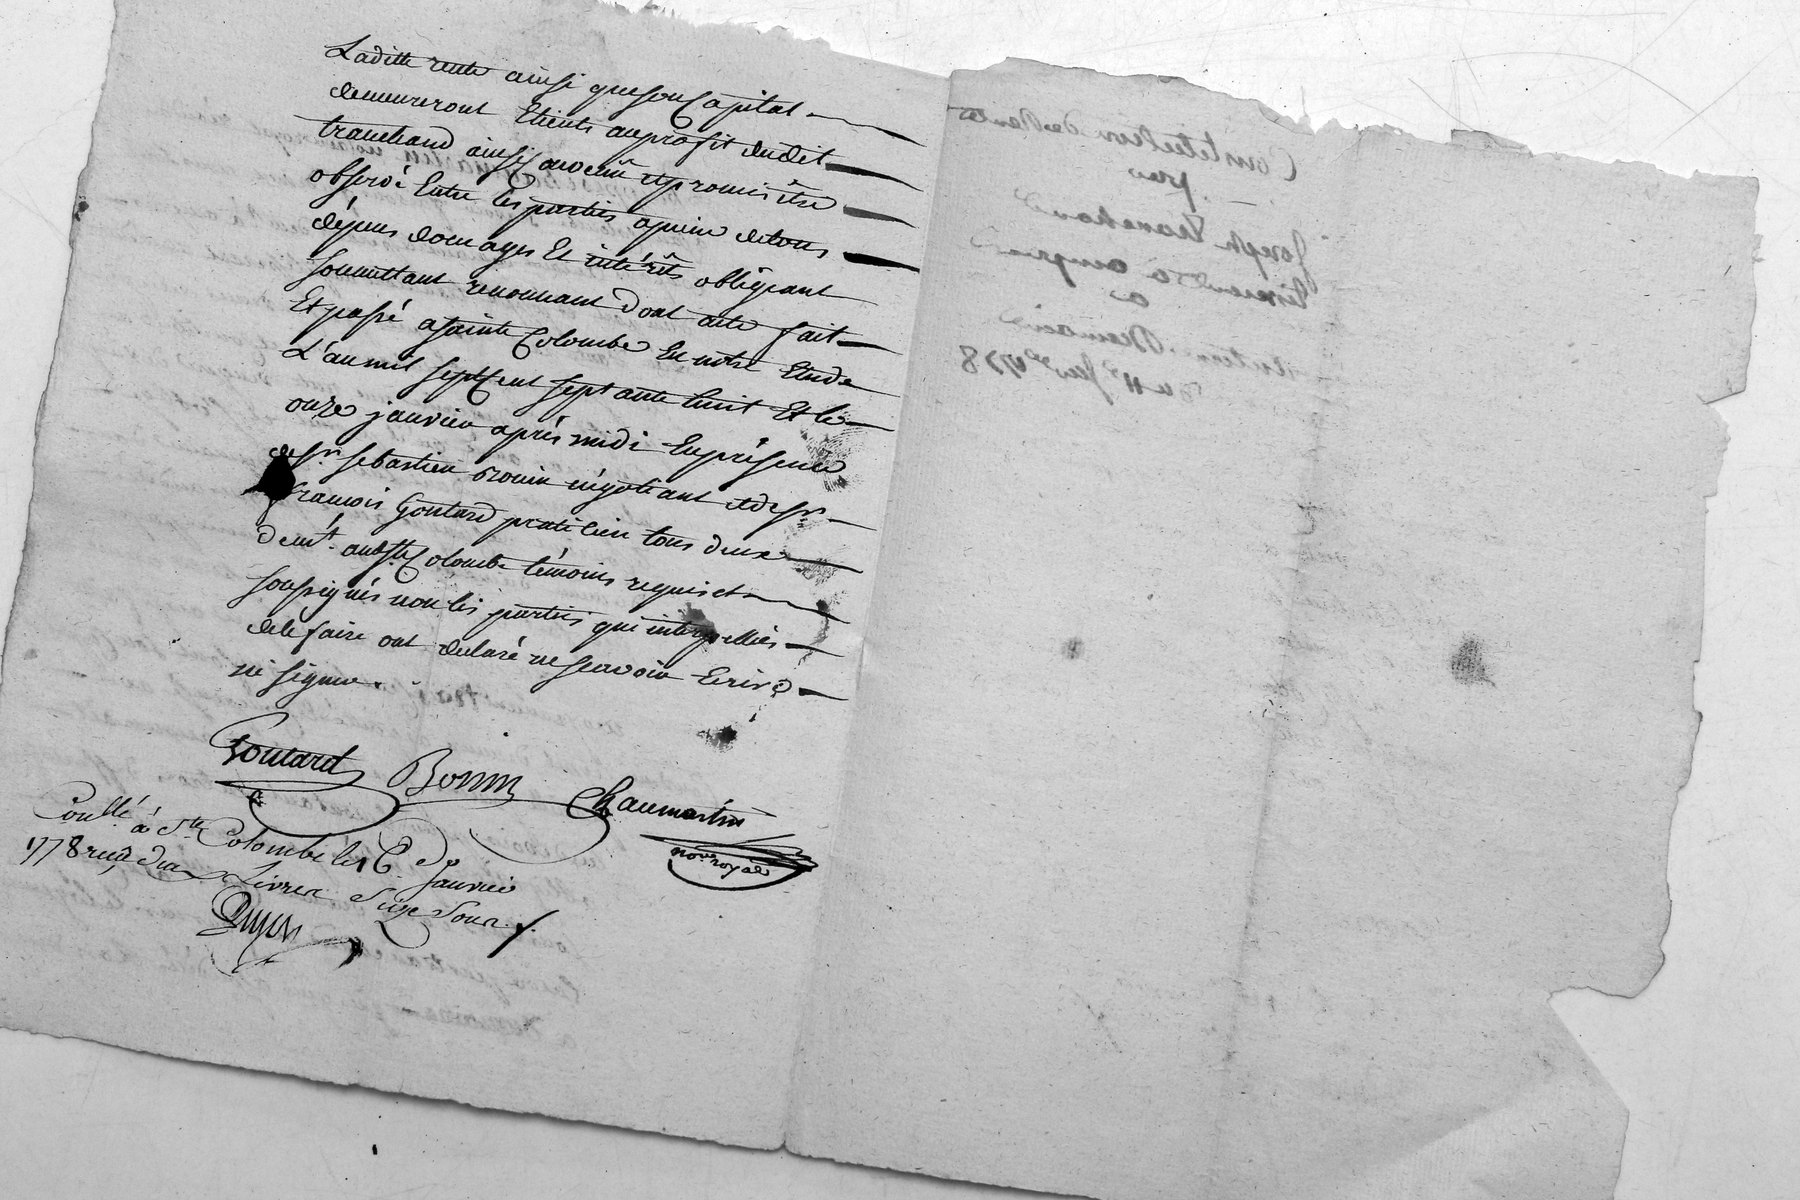 Laditte rente ainsi que son Capital
demeureront Eteints au profit dudit
tranchand ainsy convenû et promis être
observé Entre les parties apeine de tous
dépens domages Et intérêts obligeant
soumettant renonçant dont acte fait
Et passé a sainte Colombe En notre Etude
L'an mil sept Cent septante huit Et le
onze janvier après midi En présence
de sr. sebastien Bonin négotiant et de sr.
francois Goutard praticien tous deux
demt. audt. Ste Colombe témoins requis et
soussignés non les parties qui interpellées
de le faire ont declaré ne sçavoir Ecrire
ni signer.
Goutard Bonin Chaumartin
notre royal
Conllé à Ste Colombe le 16 Janvier
1778 reçu dix Livres Seize Sous
Constitution de Rente
par
Joseph Tranchand
a
du 11e janvr 1778